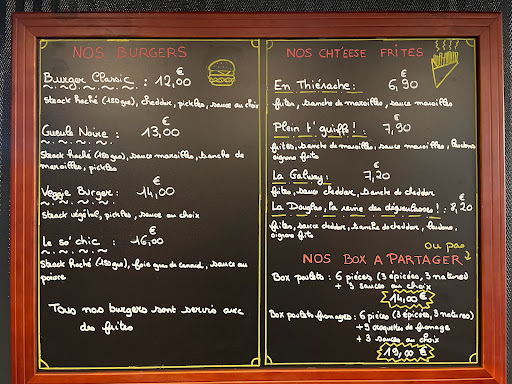 NOS BURGERS
Burger Classic : 12,00 €
Steack haché (150grs), cheddar, pickles, sauce au choix
Gueule Noire : 13,00 €
Steack haché (150grs), sauce maroilles, tranche de
maroilles, pickles
Veggie Burger : 14,00 €
Steack végétal, pickles, sauce au choix
Le so' chic : 16,00 €
Steack haché (150grs), foie gras de canard, sauce au
poivre
Tous nos burgers sont servis avec
des frites
NOS CHT'EESE FRITES
En Thiérache : 6,90 €
frites, tranche de maroilles, sauce maroilles
Plein t' quiffs ! : 7,90 €
frites, tranche de maroilles, sauce maroilles,
oignons frits
La Galway : 7,20 €
frites, sauce cheddar, tranche de cheddar
La Douglas, la reine des dégueulasses ! : 8,20 €
frites, sauce cheddar, tranche de cheddar,
oignons frits
ou pas
NOS BOX A PARTAGER
Box poulets : 6 pièces (3 épicées, 3 natures)
+ 3 sauces au choix
14,00 €
Box poulets fromages : 6 pièces (3 épicés, 3 natures)
+ 9 croquettes de fromage
+ 3 sauces au choix
19,00 €